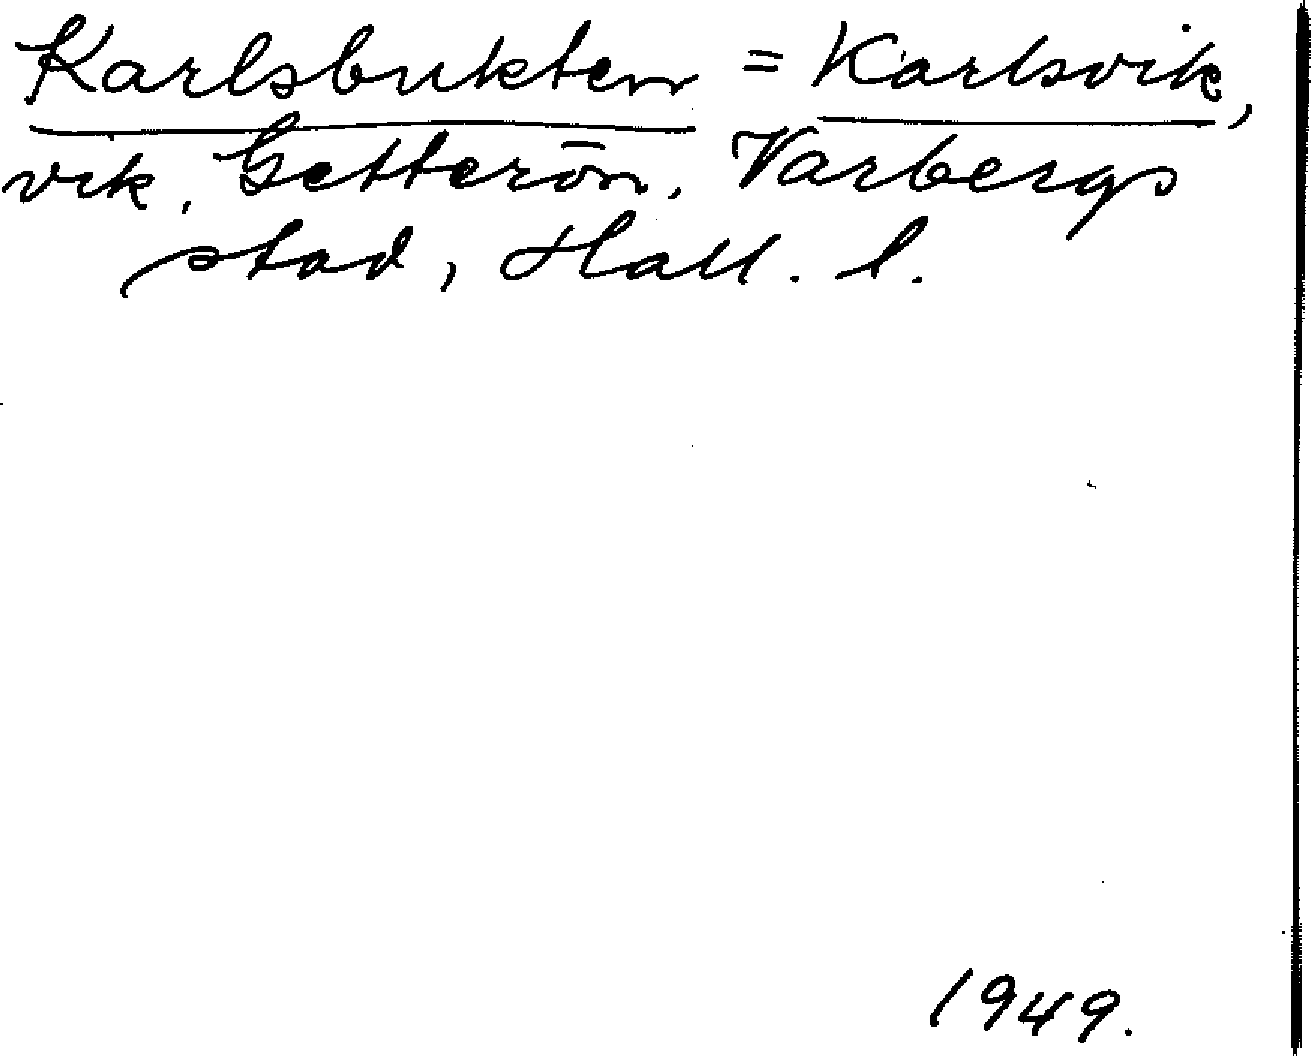 Karlsbukten = Karlsvik,
vik, Getterön, Varbergs
stad, Hall. l.
1949.